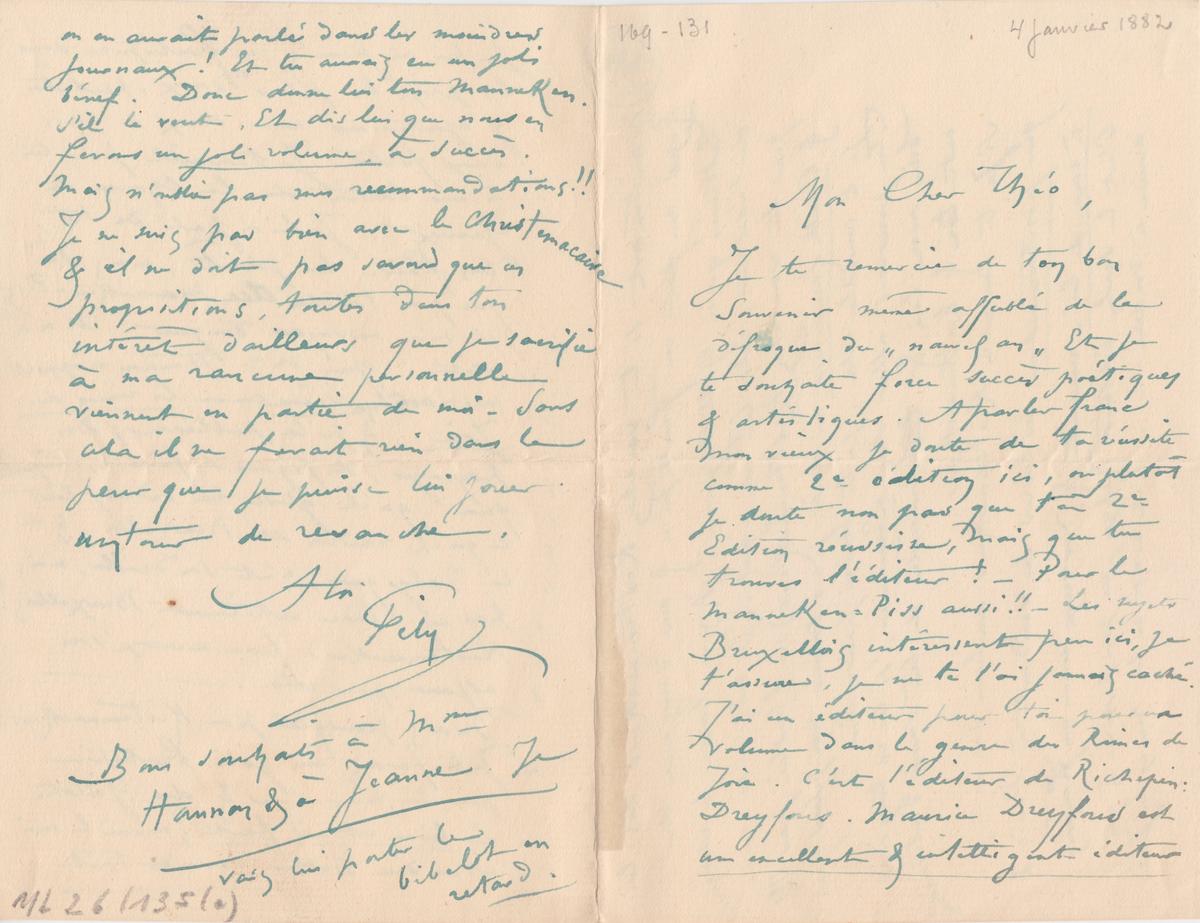 169-131
4 janvier 1882
Mon Cher Théo,
Je te remercie de ton bon
Souvenir même affublé de la
défroque du „nouvel an„ Et je
te souhaite force succès poétiques
& artistiques. A parler franc
mon vieux je doute de ta réussite
comme 2e édition ici, ou plutôt
je doute non pas que ta 2e
Edition réussisse, mais que tu
trouves l'éditeur! — Pour le
Manneken=Piss aussi!! — Les sujets
Bruxellois intéressent peu ici, je
t'assure, je ne te l'ai jamais caché.
J'ai un éditeur pour toi pour un
volume dans le genre des Rimes de
Joie. C'est l'éditeur de Richepin:
Dreyfous. Maurice Dreyfous est
un excellent & intelligent éditeur
on en aurait parlé dans les moindres
journaux! Et tu aurais eu un joli
bénef. Donc donne lui ton Manneken.
S'il le veut. Et dis lui que nous en
ferons un joli volume, à succès.
Mais n'oublie pas mes recommandations!!
Je ne suis pas bien avec le Christemacaire
& il ne doit pas savoir que ces
propositions, toutes dans ton
intérêt d'ailleurs que je sacrifie
à ma rancune personnelle
viennent en partie de moi — Sans
cela il ne ferait rien dans la
peur que je puisse lui jouer
un tour de revanche.
A toi
Fély
Bons souhaits à Mme
Hannon & à Jeanne. Je
vais lui porter le
bibelot en
retard.
ML 26/135(a)